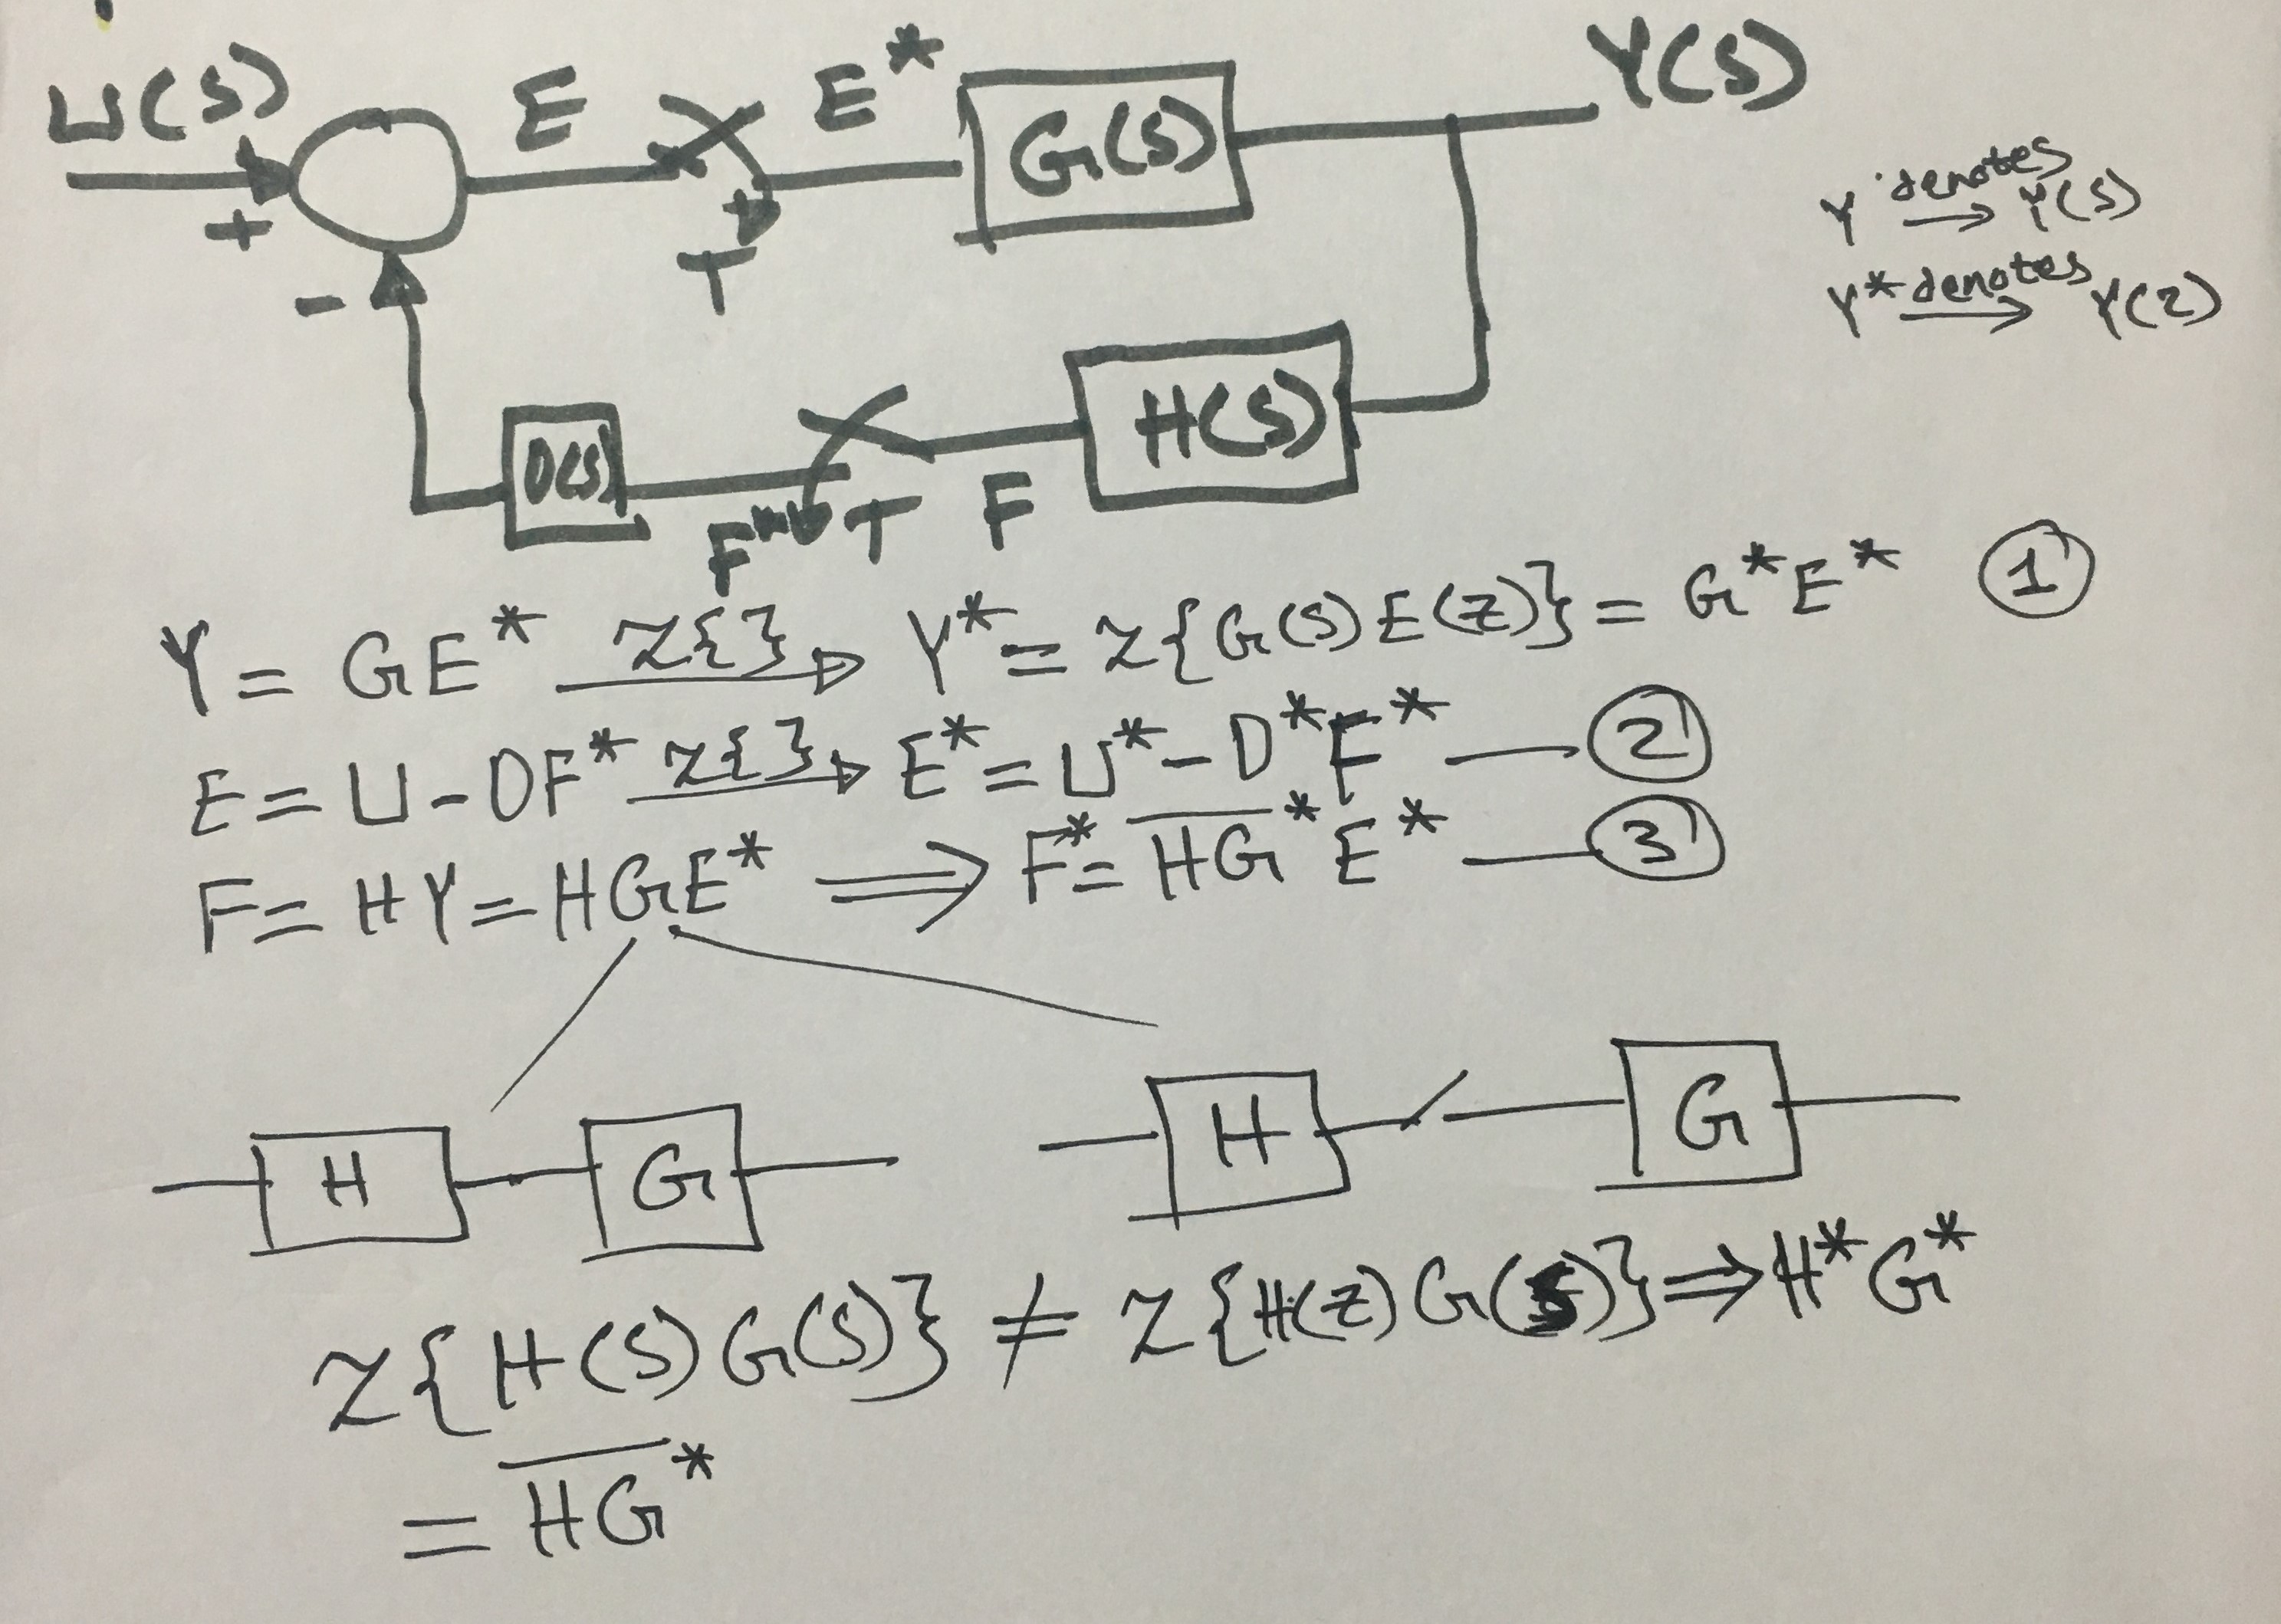 U(S) E E* G(S) Y(S)
+ T
-
Y denotes → Y(S)
Y* denotes → Y(Z)
D(S) F* T F H(S)
Y = GE* Z{} → Y* = Z{G(S)E(Z)} = G*E* ①
E = U - DF* Z{} → E* = U* - D*F* — ②
F = HY = HGE* ⟹ F* = \overline{HG}*E* — ③
H G H G
Z{H(S)G(S)} ≠ Z{H(Z)G(S)} ⇒ H*G*
= \overline{HG}*